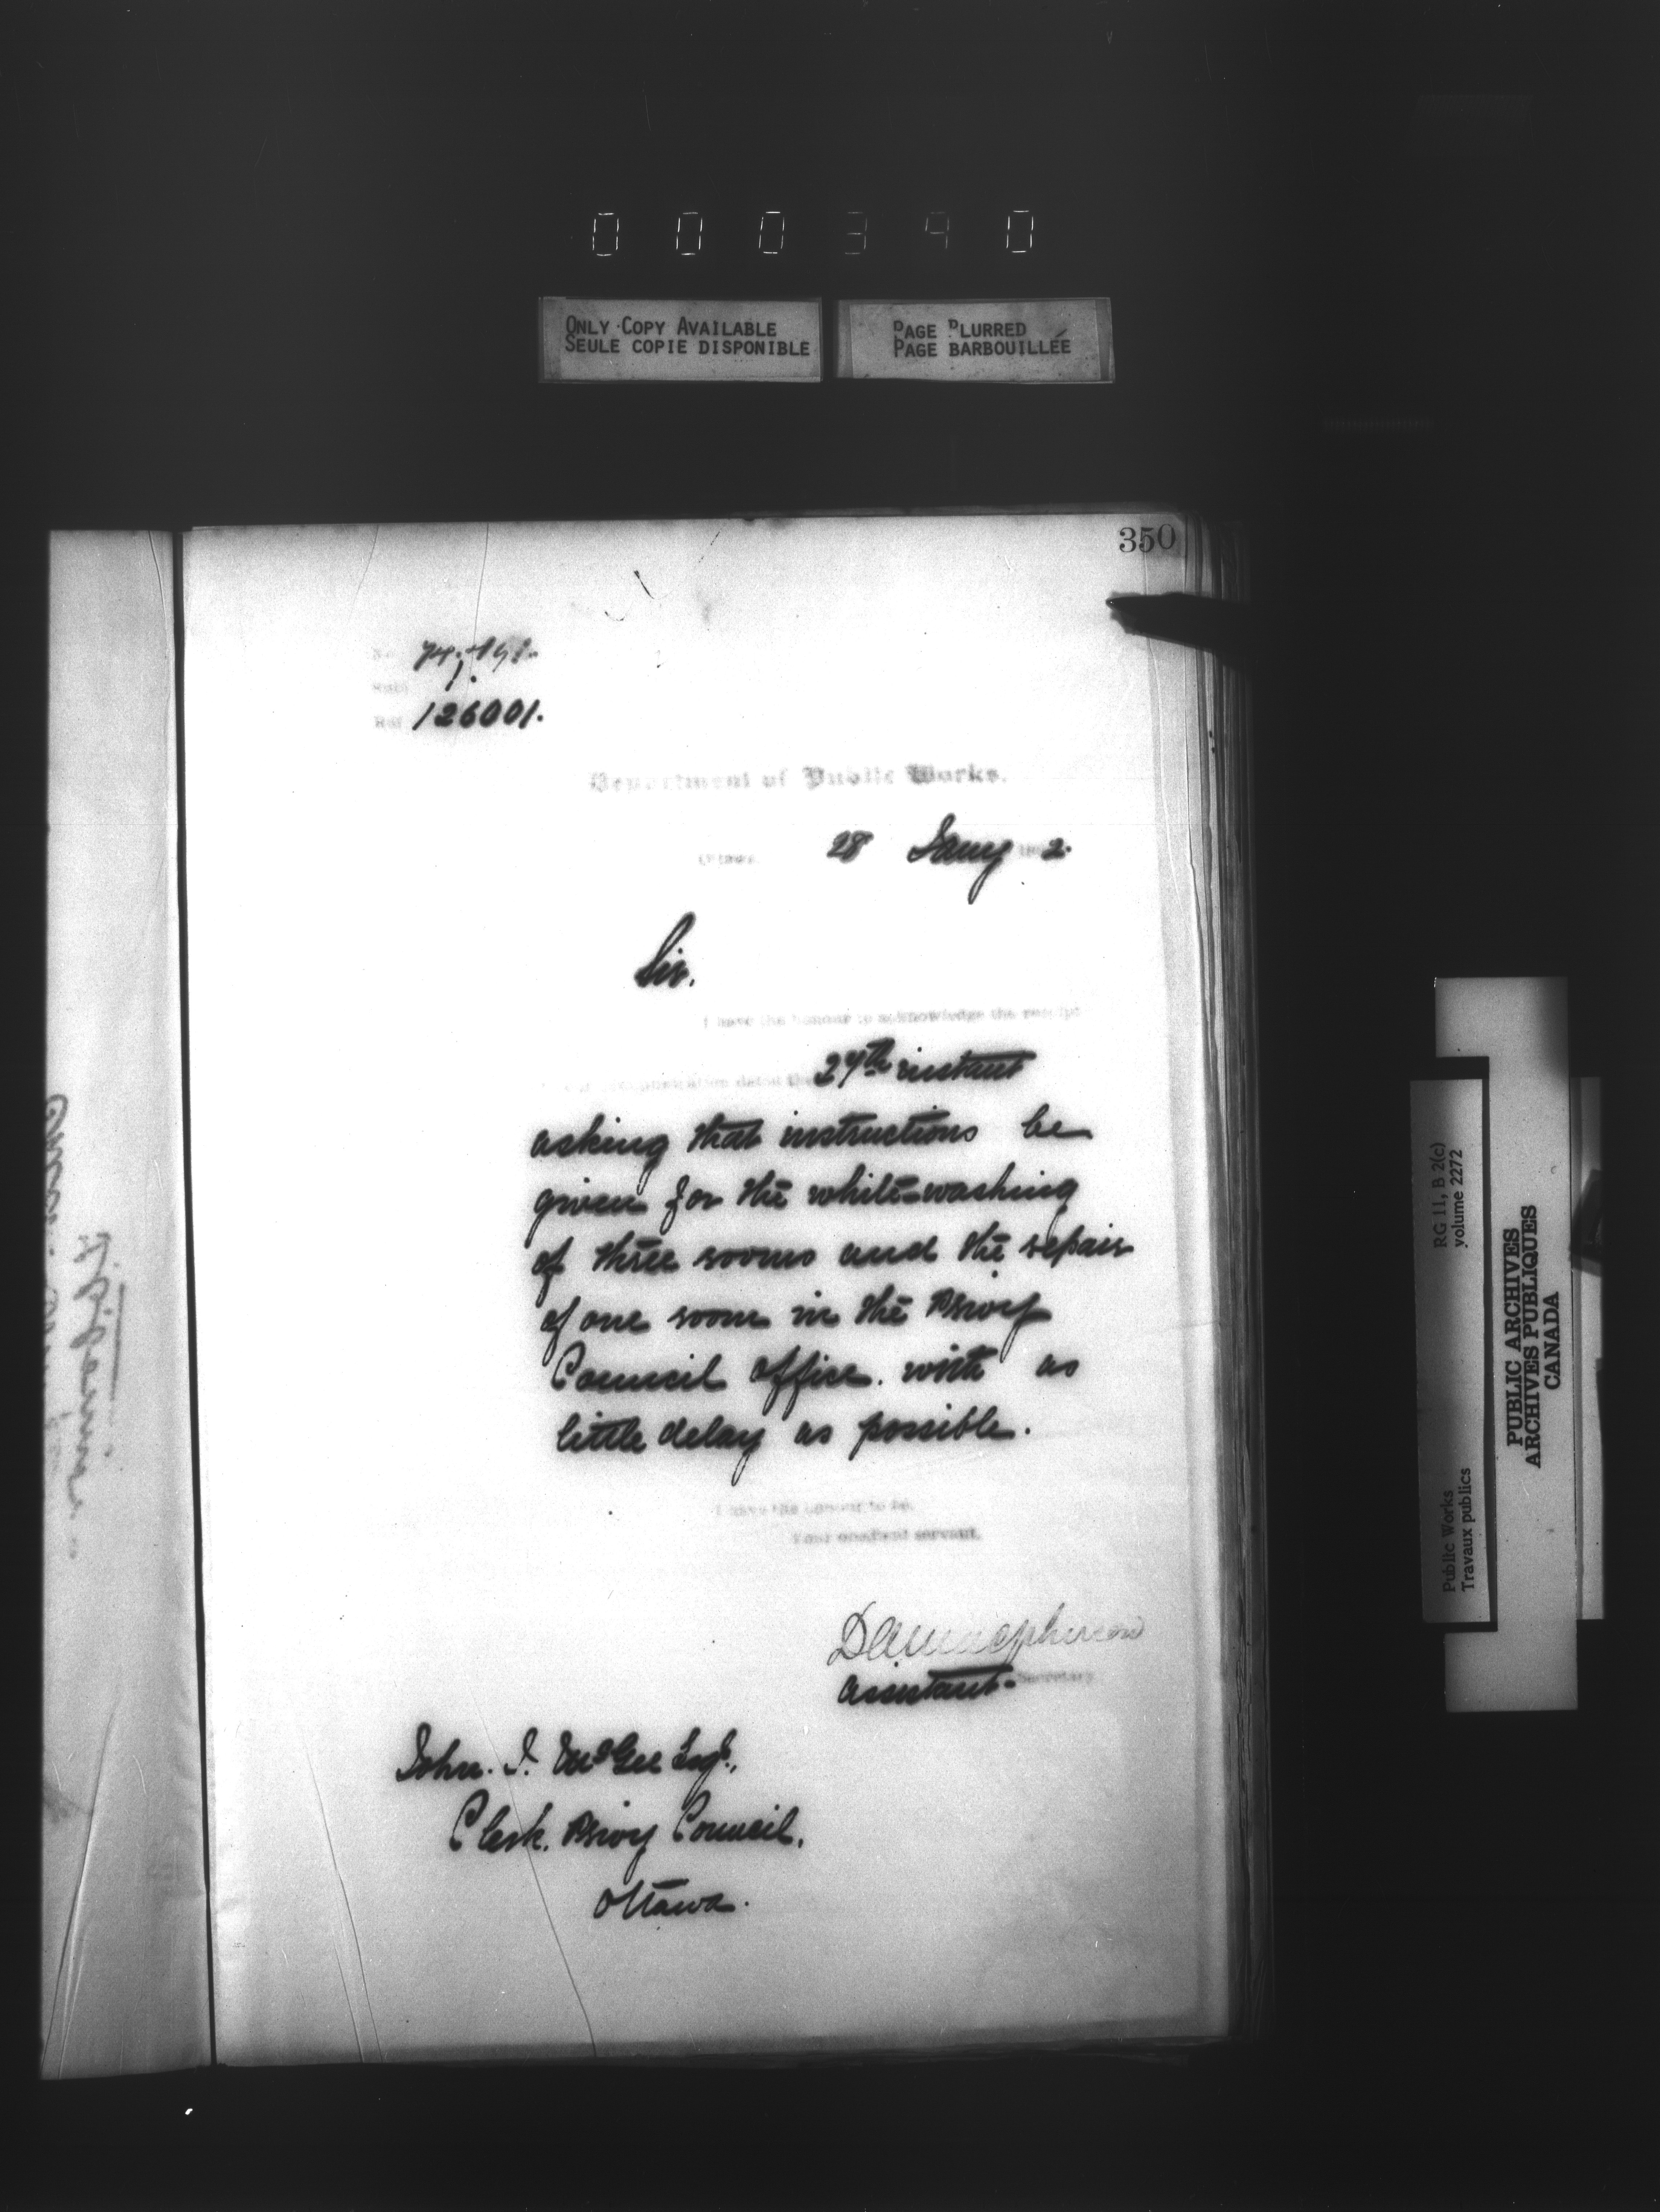 000340
ONLY COPY AVAILABLE
SEULE COPIE DISPONIBLE
PAGE BLURRED
PAGE BARBOUILLÉE
350
No
Subj
Ref 126001.
Department of Public Works.
Ottawa 28 Jany 2.
Sir.
I have the honour to acknowledge the receipt
communication dated the 27th instant
asking that instructions be
given for the white-washing
of three rooms and the repair
of one room in the Privy
Council office. with as
little delay as possible.
I have the honour to be,
Your obedient servant,
Assistant-Secretary
John. J. McGee Esqr.,
Clerk. Privy Council,
Ottawa.
RG 11, B 2(c)
volume 2272
Public Works
Travaux publics
PUBLIC ARCHIVES
ARCHIVES PUBLIQUES
CANADA